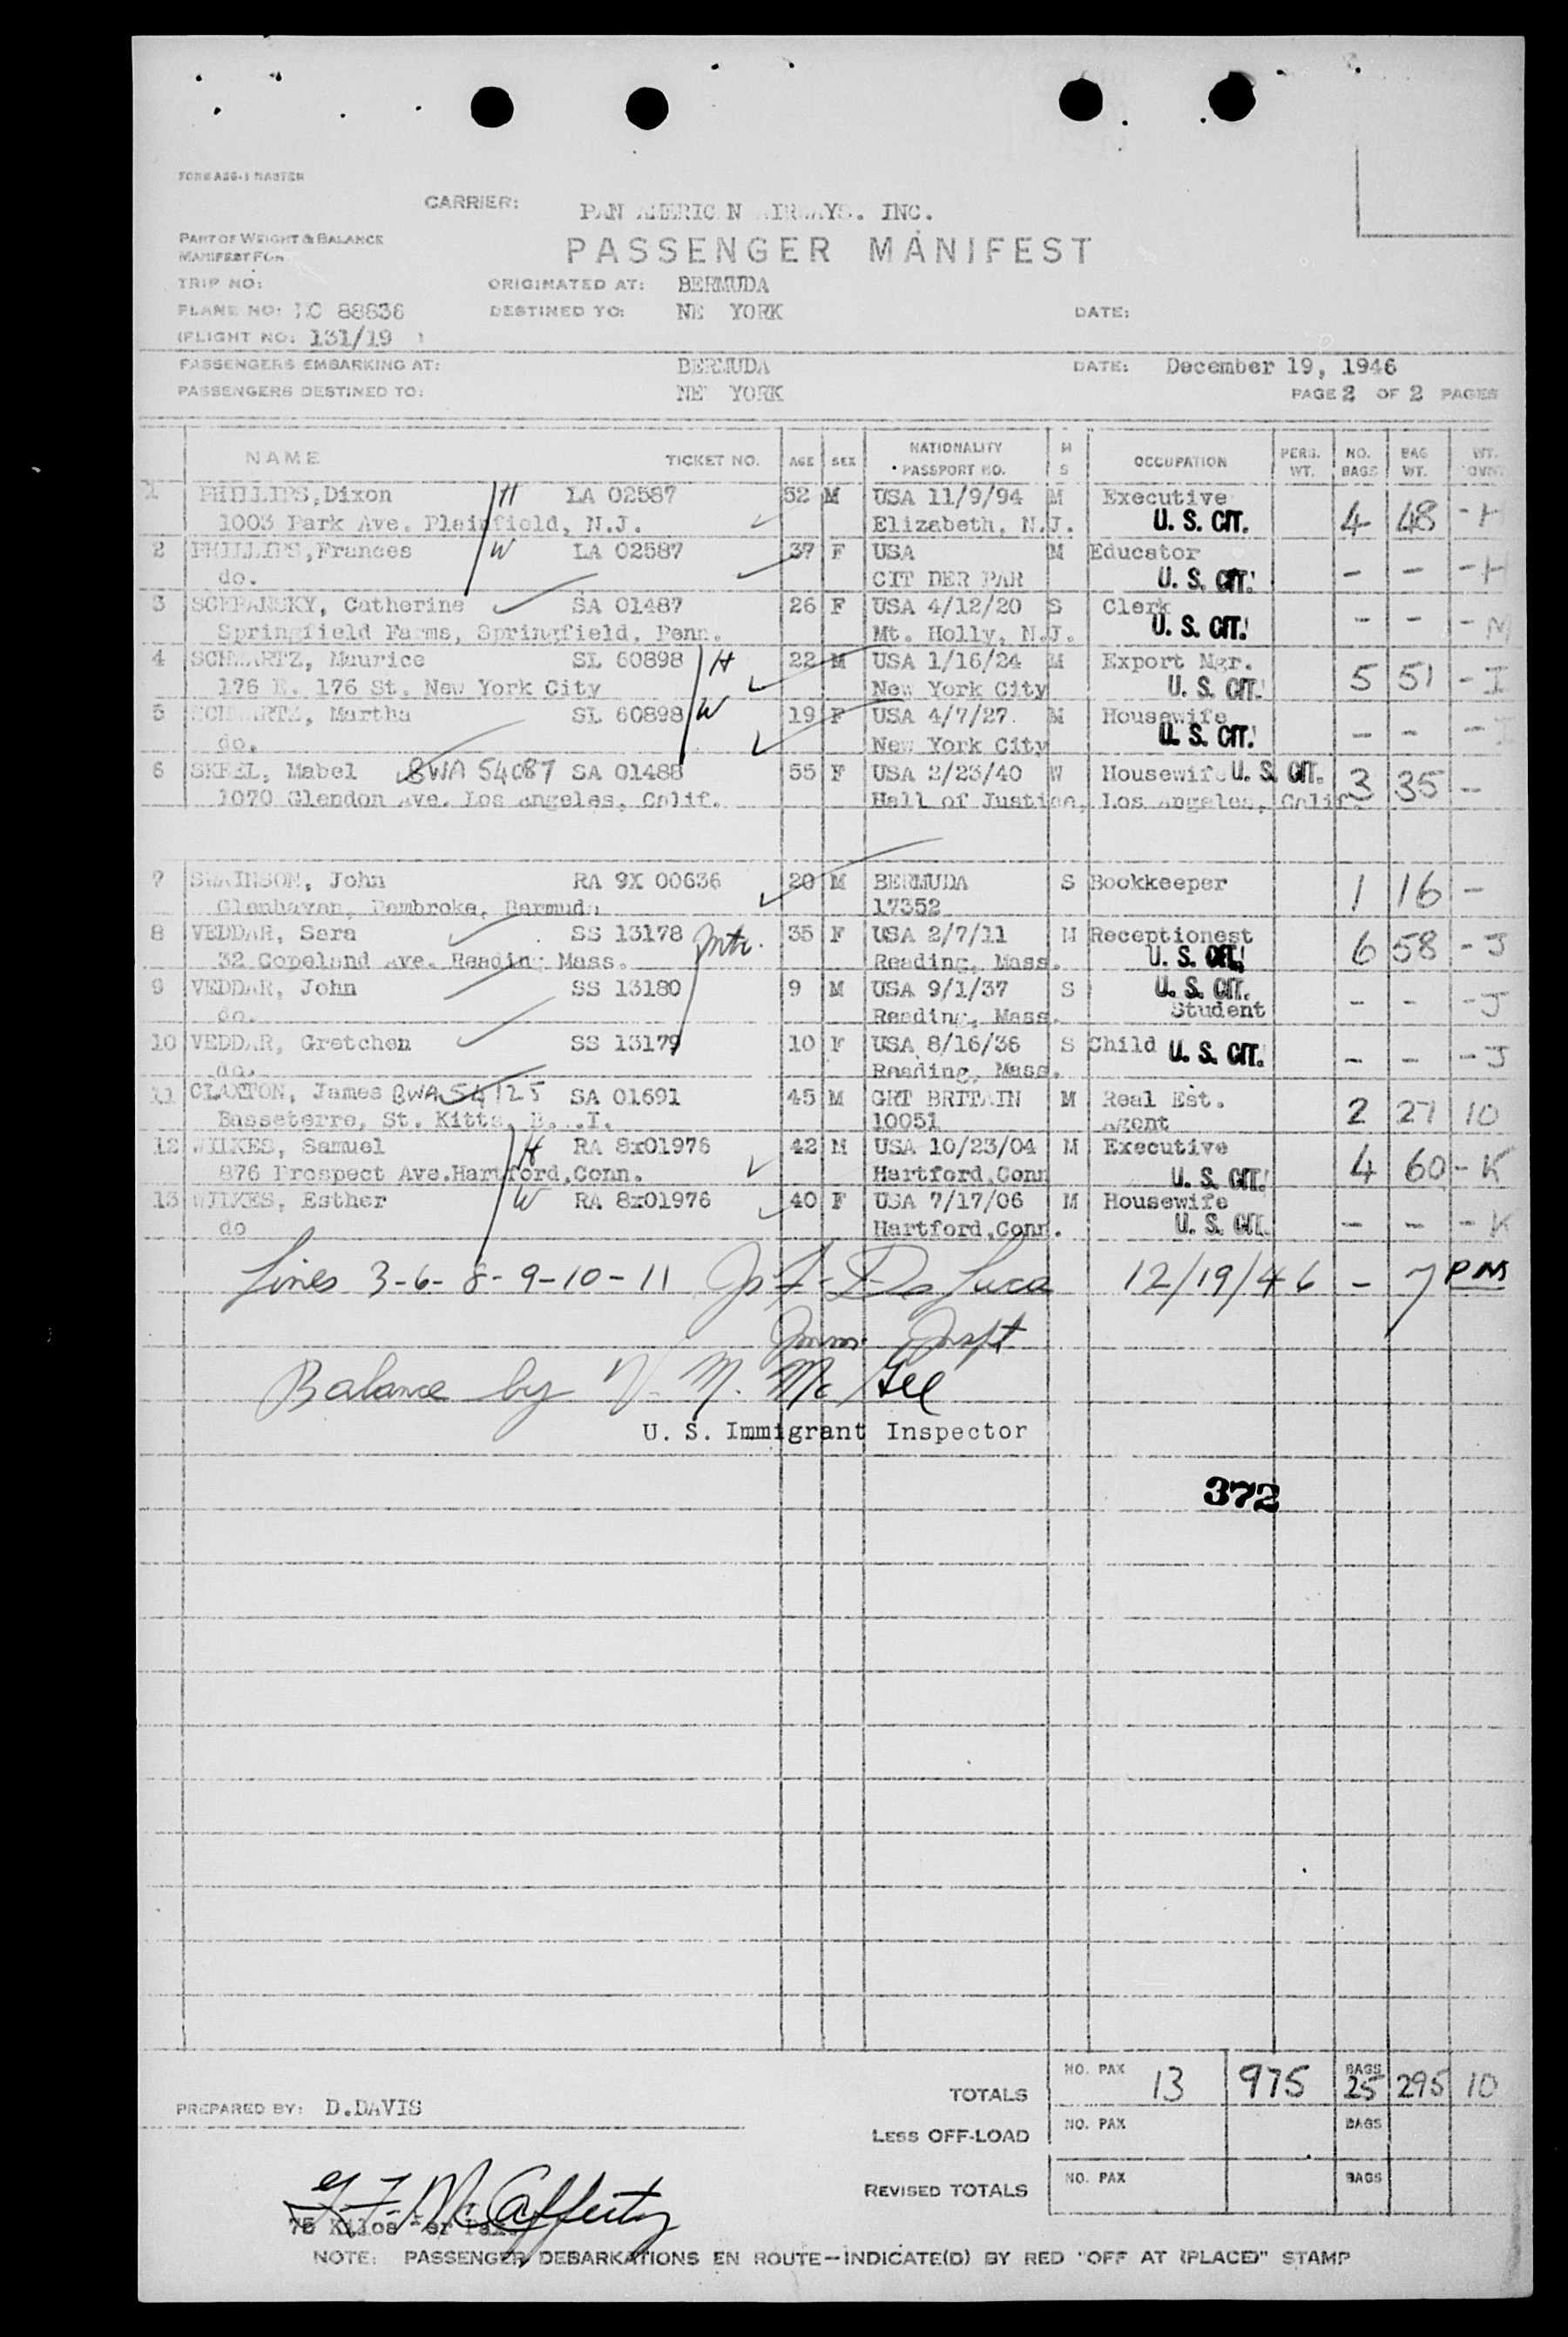 FORM A86-1 MASTER
CARRIER: PAN AMERIC N AIRWAYS. INC.
PART OF WEIGHT & BALANCE
MANIFEST FOR
PASSENGER MANIFEST
TRIP NO: ORIGINATED AT: BERMUDA
PLANE NO: NC 88836 DESTINED TO: NE YORK DATE:
(FLIGHT NO: 131/19 )
PASSENGERS EMBARKING AT: BERMUDA DATE: December 19, 1946
PASSENGERS DESTINED TO: NE YORK PAGE 2 OF 2 PAGES
NAME TICKET NO. AGE SEX NATIONALITY PASSPORT NO. M S OCCUPATION PERS. WT. NO. BAGS BAG WT. WT.
1 PHILLIPS,Dixon H LA 02587 52 M USA 11/9/94 M Executive
1003 Park Ave. Plainfield, N.J. Elizabeth, N.J. U. S. CIT. 4 48 - H
2 PHILLIPS,Frances W LA 02587 37 F USA M Educator
do. CIT DER PAR U. S. CIT. - - - H
3 SCEPANSKY, Catherine SA 01487 26 F USA 4/12/20 S Clerk
Springfield Farms, Springfield, Penn. Mt. Holly, N.J. U. S. CIT. - - - M
4 SCHWARTZ, Maurice SL 60898 H 22 M USA 1/16/24 M Export Mgr.
176 E. 176 St. New York City New York City U. S. CIT. 5 51 - I
5 SCHWARTZ, Martha SL 60898 W 19 F USA 4/7/27 M Housewife
do. New York City U. S. CIT. - - - I
6 SKEEL, Mabel BWA 54087 SA 01488 55 F USA 2/23/40 W Housewife U. S. CIT. 3 35 -
1070 Glendon Ave. Los Angeles, Calif. Hall of Justice, Los Angeles, Calif.
7 SWAINSON, John RA 9X 00636 20 M BERMUDA S Bookkeeper 1 16 -
Glenhaven, Pembroke, Bermuda 17352
8 VEDDAR, Sara SS 13178 Mtr. 35 F USA 2/7/11 M Receptionest
32 Copeland Ave. Reading Mass. Reading, Mass. U. S. CIT. 6 58 - J
9 VEDDAR, John SS 13180 9 M USA 9/1/37 S U. S. CIT.
do. Reading, Mass. Student - - - J
10 VEDDAR, Gretchen SS 13179 10 F USA 8/16/36 S Child U. S. CIT. - - - J
do. Reading, Mass.
11 CLAXTON, James BWA 54125 SA 01691 45 M GRT BRITAIN M Real Est.
Basseterre, St. Kitts, B. .I. 10051 Agent 2 27 10
12 WILKES, Samuel H RA 8x01976 42 M USA 10/23/04 M Executive
876 Prospect Ave.Hartford,Conn. Hartford,Conn U. S. CIT. 4 60 - K
13 WILKES, Esther W RA 8x01976 40 F USA 7/17/06 M Housewife
do Hartford,Conn. U. S. CIT. - - - K
Lines 3-6-8-9-10-11 Jo F. De Luca 12/19/46 - 7 PM
Imm. Inspt
Balance by V. M. McGee
U. S. Immigrant Inspector
372
TOTALS NO. PAX 13 975 BAGS 25 295 10
PREPARED BY: D.DAVIS
LESS OFF-LOAD NO. PAX BAGS
REVISED TOTALS NO. PAX BAGS
G F McCafferty
75 Kilos Per Pax.
NOTE: PASSENGER DEBARKATIONS EN ROUTE—INDICATE(D) BY RED "OFF AT (PLACE)" STAMP